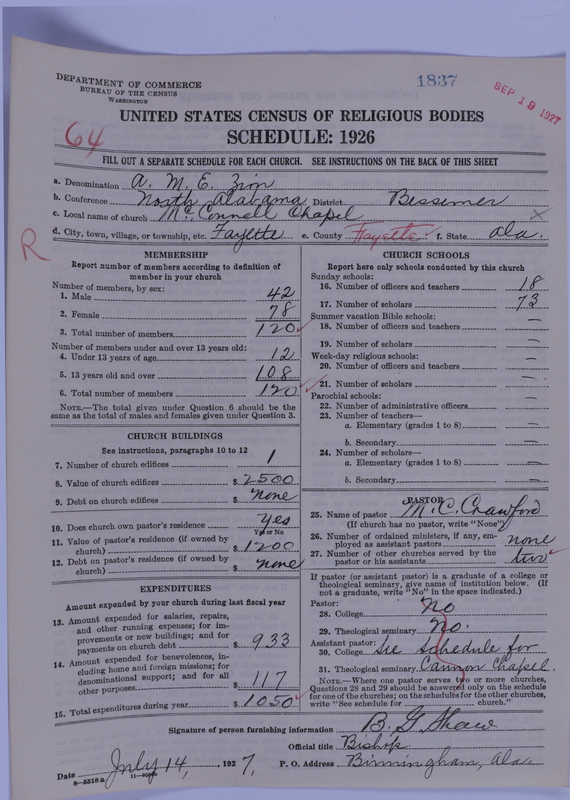 DEPARTMENT OF COMMERCE
BUREAU OF THE CENSUS
WASHINGTON
1837
SEP 19 1927
64
UNITED STATES CENSUS OF RELIGIOUS BODIES
SCHEDULE: 1926
FILL OUT A SEPARATE SCHEDULE FOR EACH CHURCH. SEE INSTRUCTIONS ON THE BACK OF THIS SHEET
a. Denomination A. M. E. Zion
b. Conference North Alabama District Bessemer
c. Local name of church McConnell Chapel
d. City, town, village, or township, etc. Fayette e. County Fayette f. State Ala.
R
MEMBERSHIP
Report number of members according to definition of
member in your church
Number of members, by sex:
1. Male 42
2. Female 78
3. Total number of members 120
Number of members under and over 13 years old:
4. Under 13 years of age 12
5. 13 years old and over 108
6. Total number of members 120
NOTE.—The total given under Question 6 should be the
same as the total of males and females given under Question 3.
CHURCH BUILDINGS
See instructions, paragraphs 10 to 12
7. Number of church edifices 1
8. Value of church edifices $ 2500
9. Debt on church edifices $ none
10. Does church own pastor's residence Yes
Yes or No
11. Value of pastor's residence (if owned by
church) $ 1200
12. Debt on pastor's residence (if owned by
church) $ none
EXPENDITURES
Amount expended by your church during last fiscal year
13. Amount expended for salaries, repairs,
and other running expenses; for im-
provements or new buildings; and for
payments on church debt $ 933
14. Amount expended for benevolences, in-
cluding home and foreign missions; for
denominational support; and for all
other purposes $ 117
15. Total expenditures during year $ 1050
CHURCH SCHOOLS
Report here only schools conducted by this church
Sunday schools:
16. Number of officers and teachers 18
17. Number of scholars 73
Summer vacation Bible schools:
18. Number of officers and teachers —
19. Number of scholars —
Week-day religious schools:
20. Number of officers and teachers —
21. Number of scholars —
Parochial schools:
22. Number of administrative officers —
23. Number of teachers—
a. Elementary (grades 1 to 8) —
b. Secondary —
24. Number of scholars—
a. Elementary (grades 1 to 8) —
b. Secondary —
PASTOR
25. Name of pastor M. C. Crawford
(If church has no pastor, write "None")
26. Number of ordained ministers, if any, em-
ployed as assistant pastors none
27. Number of other churches served by the
pastor or his assistants two
If pastor (or assistant pastor) is a graduate of a college or
theological seminary, give name of institution below. (If
not a graduate, write "No" in the space indicated.)
Pastor:
28. College No
29. Theological seminary No.
Assistant pastor:
30. College See Schedule for
31. Theological seminary Cannon Chapel.
NOTE.—Where one pastor serves two or more churches,
Questions 28 and 29 should be answered only on the schedule
for one of the churches; on the schedules for the other churches,
write "See schedule for church."
Signature of person furnishing information B. G. Shaw
Official title Bishop
Date July 14, 1927, P. O. Address Birmingham, Ala.